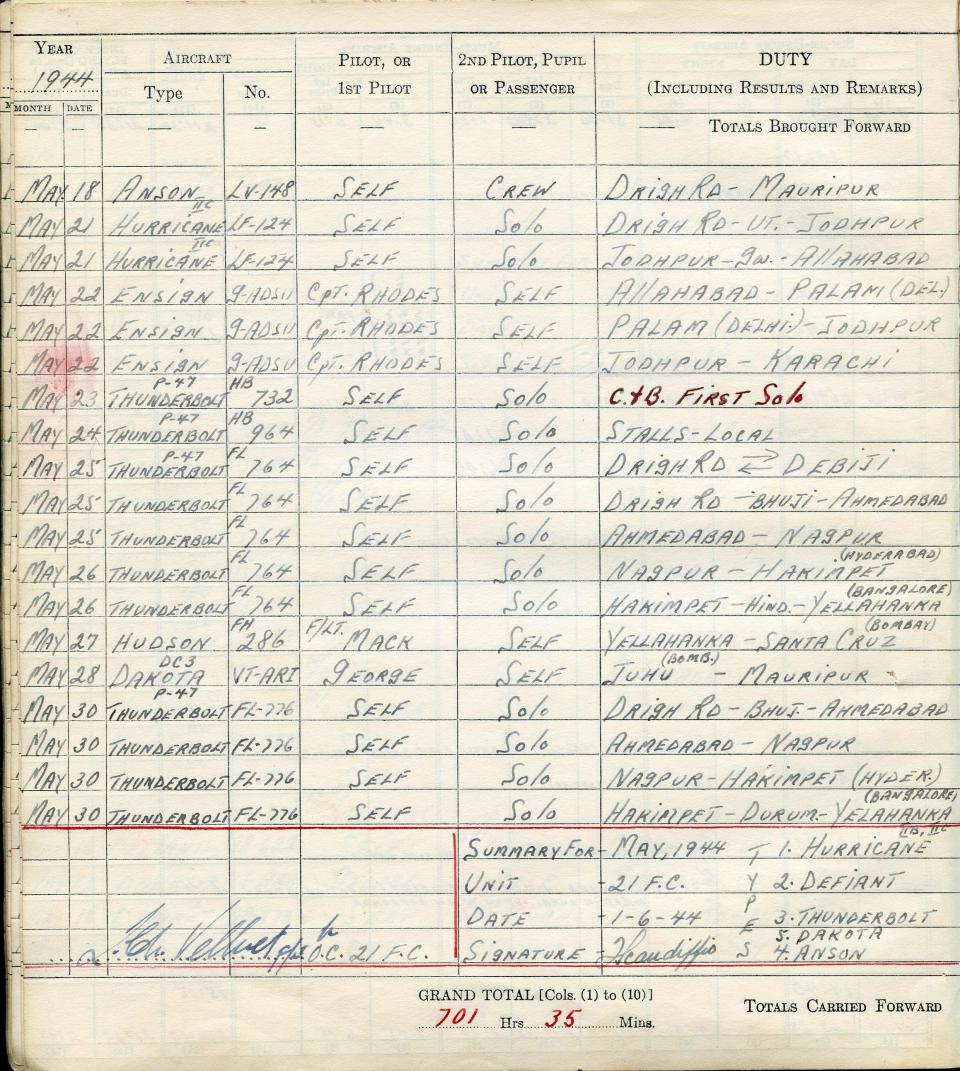 YEAR AIRCRAFT PILOT, OR 2ND PILOT, PUPIL DUTY
1944 Type No. 1ST PILOT OR PASSENGER (INCLUDING RESULTS AND REMARKS)
MONTH DATE
— — — — — — — TOTALS BROUGHT FORWARD
MAY 18 ANSON LV-148 SELF CREW DRIGH RD - MAURIPUR
MAY 21 HURRICANE IIC LF-124 SELF Solo DRIGH RD - UT. - JODHPUR
MAY 21 HURRICANE IIC LF-124 SELF Solo JODHPUR - GW. - AllAHABAD
MAY 22 ENSIGN G-ADSU CPT. RHODES SELF AllAHABAD - PALAM (DEL.)
MAY 22 ENSIGN G-ADSU CPT. RHODES SELF PALAM (DELHI.) - JODHPUR
MAY 22 ENSIGN G-ADSU CPT. RHODES SELF JODHPUR - KARACHI
MAY 23 P-47 THUNDERBOLT HB 732 SELF Solo C.&B. FIRST Solo
MAY 24 P-47 THUNDERBOLT HB 964 SELF Solo STALLS - LOCAL
MAY 25 P-47 THUNDERBOLT FL 764 SELF Solo DRIGH RD ⇄ DEBIJI
MAY 25 THUNDERBOLT FL 764 SELF Solo DRIGH RD - BHUJI - AHMEDABAD
MAY 25 THUNDERBOLT FL 764 SELF Solo AHMEDABAD - NAGPUR
MAY 26 THUNDERBOLT FL 764 SELF Solo NAGPUR - HAKIMPET (HYDERABAD)
MAY 26 THUNDERBOLT FL 764 SELF Solo HAKIMPET - HIND. - YELLAHANKA (BANGALORE)
MAY 27 HUDSON FH 286 F/LT. MACK SELF YELLAHANKA - SANTA CRUZ (BOMBAY)
MAY 28 DC3 DAKOTA VT-ARI GEORGE SELF JUHU (BOMB.) - MAURIPUR
MAY 30 P-47 THUNDERBOLT FL-776 SELF Solo DRIGH RD - BHUJ. - AHMEDABAD
MAY 30 THUNDERBOLT FL-776 SELF Solo AHMEDABAD - NAGPUR
MAY 30 THUNDERBOLT FL-776 SELF Solo NAGPUR - HAKIMPET (HYDER.)
MAY 30 THUNDERBOLT FL-776 SELF Solo HAKIMPET - DURUM - YELAHANKA (BANGALORE)
SUMMARY FOR - MAY, 1944 T 1. HURRICANE IIB, IIC
UNIT - 21 F.C. Y 2. DEFIANT
DATE - 1-6-44 P 3. THUNDERBOLT
E 5. DAKOTA
O.C. 21 F.C. SIGNATURE - S 4. ANSON
GRAND TOTAL [Cols. (1) to (10)] TOTALS CARRIED FORWARD
701 Hrs 35 Mins.